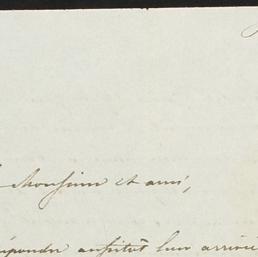 Monsieur et ami,
répondre aussitôt leur arrivée